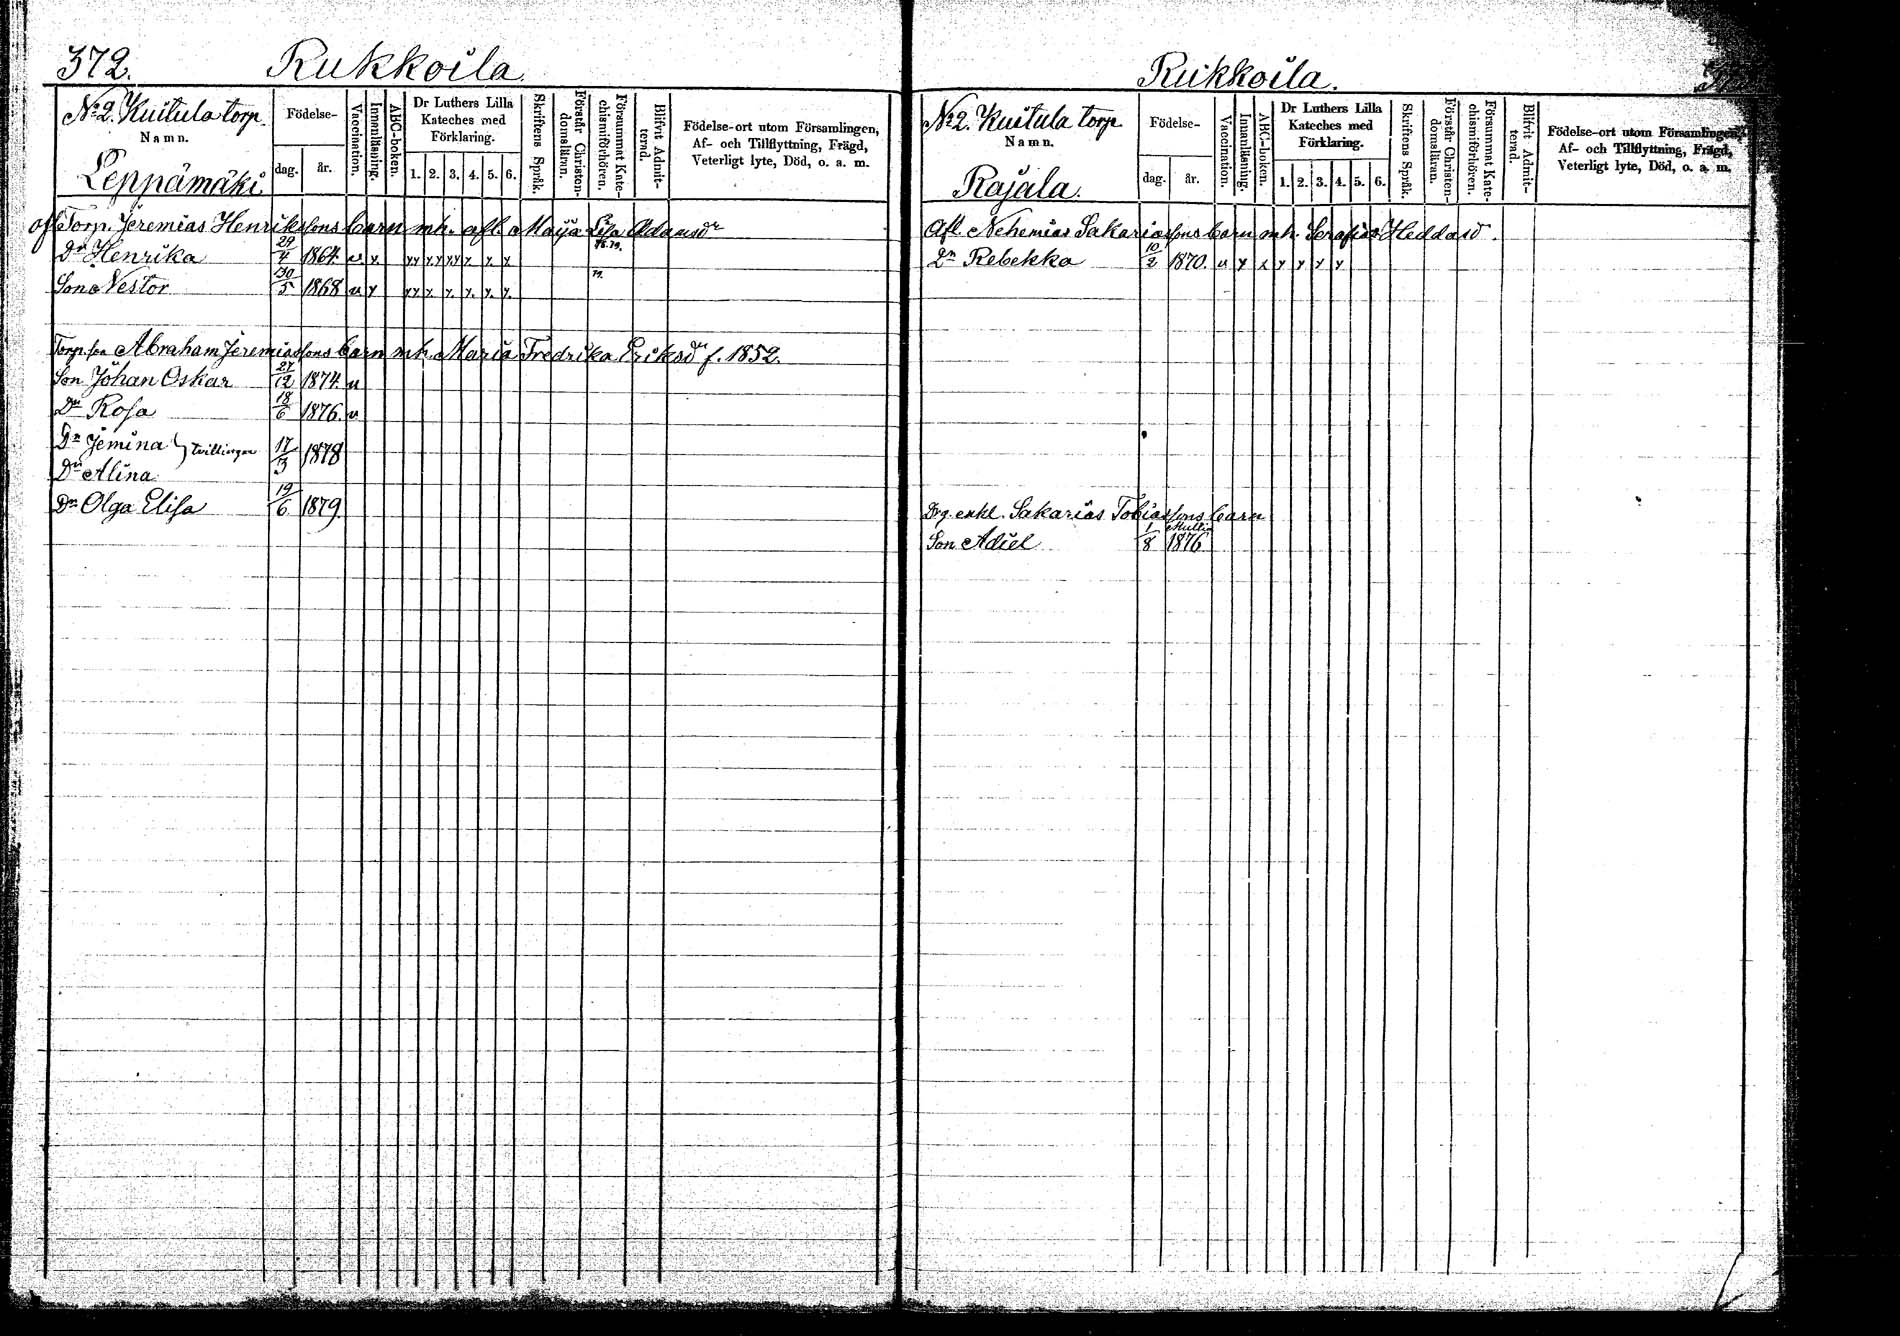 372.
Rukkoila.
No 2. Kuitula torp.
Namn.
Leppämäki
Födelse-
dag.
år.
Vaccination.
Innanläsning.
ABC-boken.
Dr Luthers Lilla
Kateches med
Förklaring.
1. 2. 3. 4. 5. 6.
Skriftens Språk.
Förstår Christen-
domsläran.
Försummat Kate-
chismiförhören.
Blifvit Admit-
terad.
Födelse-ort utom Församlingen,
Af- och Tillflyttning, Frägd,
Veterligt lyte, Död, o. a. m.
afl Torp. Jeremias Henrikssons barn mh. afl. Maija Lisa Adamsdr
Dr Henrika 29/4 1864.
Son Nestor 30/5 1868
Torp. son Abraham Jeremiassons barn mh. Maria Fredrika Eriksdr f. 1852.
Son Johan Oskar 27/12 1874.
Dr Rosa 18/6 1876.
Dr Jemina } tvillingar 17/3 1878
Dr Alina
Dr Olga Elisa 19/6 1879.
Rukkoila.
No 2. Kuitula torp
Namn.
Rajala.
Födelse-
dag.
år.
Vaccination.
Innanläsning.
ABC-boken.
Dr Luthers Lilla
Kateches med
Förklaring.
1. 2. 3. 4. 5. 6.
Skriftens Språk.
Förstår Christen-
domsläran.
Försummat Kate-
chismiförhören.
Blifvit Admit-
terad.
Födelse-ort utom Församlingen,
Af- och Tillflyttning, Frägd,
Veterligt lyte, Död, o. a. m.
Afl. Nehemias Sakariassons barn mh. Serafia Heddasd.
Dr Rebekka 10/2 1870.
Drg. enkl. Sakarias Tobiassons barn
Son Adiel 1/8 1876